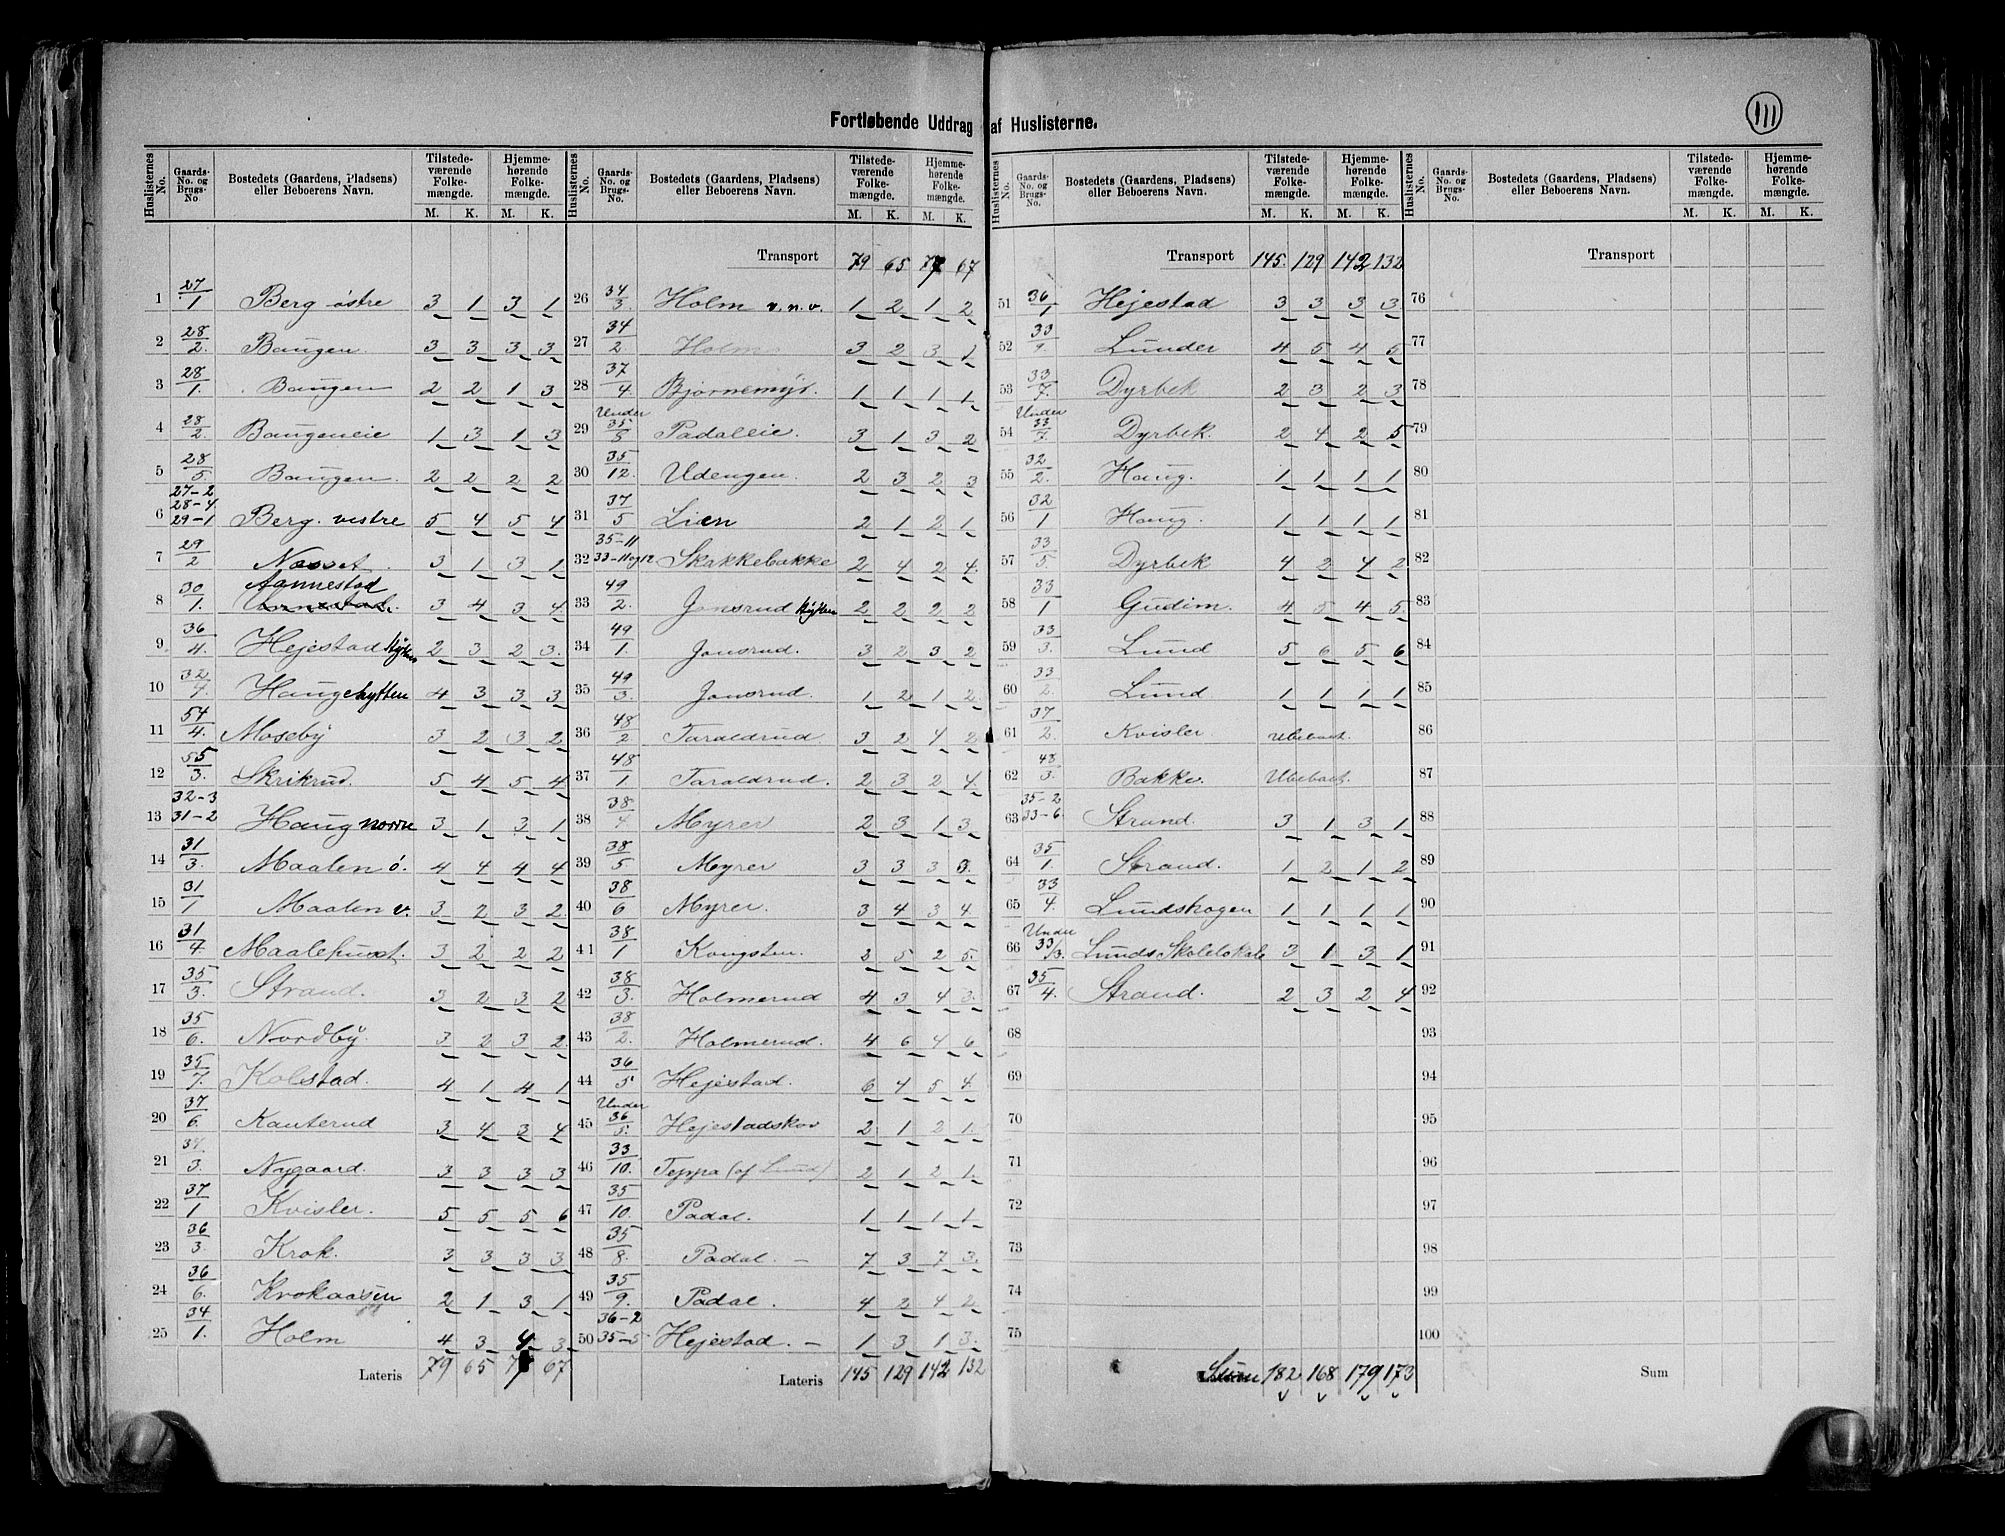 Fortløbende Uddrag af Huslisterne.
111
Huslisternes No. Gaards-No. og Brugs-No Bostedets (Gaardens, Pladsens) eller Beboerens Navn. Tilstedeværende Folkemængde. M. K. Hjemmehørende Folkemængde. M. K.
1 27/1 Berg østre 3 1 3 1
2 28/2. Baugen. 3 3 3 3
3 28/1. Baugen 2 2 1 3
4 28/2. Baugeneie 1 3 1 3
5 28/5. Baugen. 2 2 2 2
6 27-2 28-4 29-1 Berg. vestre 5 4 5 4
7 29/2 Nosset. 3 1 3 1
8 30/1. Aannestad 3 4 3 4.
9 36/4. Hejestad 2 3 2 3.
10 32/4. Haugehytten 4 3 3 3
11 54/4. Moseby 3 2 3 2
12 55/3. Skrikrud. 5 4 5 4
13 32-3 31-2 Haug norre 3 1 3 1
14 31/3. Maalen ö. 4 4 4 4
15 31/1 Maalen v. 3 2 3 2.
16 31/4. 3 2 2 2
17 35/3. Strand. 3 2 3 2
18 35/6. Nordby. 3 2 3 2.
19 35/7. Kolstad. 4 1 4 1
20 37/6. Kauterud 3 4 3 4
21 37/3. Nygaard. 3 3 3 3
22 37/1 Kvisler. 5 5 5 6
23 36/3 Krok. 3 3 3 3
24 36/6. Krokaasen 2 1 3 1
25 34/1. Holm 4 3 4 3
Lateris 79 65 77 67
Huslisternes No. Gaards-No. og Brugs-No. Bostedets (Gaardens, Pladsens) eller Beboerens Navn. Tilstedeværende Folkemængde. M. K. Hjemmehørende Folkemængde. M. K.
Transport 79 65 77 67
26 34/3 Holm v. n. v. 1 2 1 2
27 34/2 Holm 3 2 3 1
28 37/4. Bjørnemyr. 1 1 1 1.
29 Under 35/5 Padaleie. 3 1 3 2
30 35/12. Udengen. 2 3 2 3
31 37/5 Lien 2 1 2 1.
32 35-11 33-11og12 Skakkebakke 2 4 2 4.
33 49/2. Jonsrud 2 2 2 2
34 49/1. Jonsrud. 3 2 3 2
35 49/3. Jonsrud. 1 2 1 2.
36 48/2 Taraldrud 3 2 4 2
37 48/1 Taraldrud. 2 3 2 4.
38 38/4 Myrer 2 3 1 3.
39 38/5 Myrer 3 3 3 3.
40 38/6 Myrer. 3 4 3 4.
41 38/1 Kongsten. 2 5 2 5.
42 38/3. Holmerud 4 3 4 3.
43 38/2. Holmerud. 4 6 4 6
44 36/5 Hejestad. 6 4 5 4.
45 Under 36/5. Hejestadskov 2 1 2 1.
46 33/10. Teppa (af Lund) 2 1 2 1.
47 35/10. Padal. 1 1 1 1
48 35/8. Padal. – 7 3 7 3.
49 35/9. Padal. 4 2 4 2.
50 36-2 35-5 Hejestad. – 1 3 1 3.
Lateris 145 129 142 132
Huslisternes No. Gaards-No. og Brugs-No. Bostedets (Gaardens, Pladsens) eller Beboerens Navn. Tilstedeværende Folkemængde. M. K. Hjemmehørende Folkemængde. M. K.
Transport 145. 129 142 132
51 36/1 Hejestad 3 3 3 3
52 33/9. Lunder 4 5 4 5
53 33/7. Dyrbek 2 3 2 3
54 Under 33/7 Dyrbek. 2 4 2 5
55 32/2. Haug. 1 1 1 1
56 32/1 Haug. 1 1 1 1
57 33/5 Dyrbek 4 2 4 2
58 33/1 Gudim. 4 5 4 5
59 33/3. Lund 5 6 5 6
60 33/2. Lund 1 1 1 1
61 37/2. Kvisler Ubeboet.
62 43/3. Bakke. Ubeboet.
63 35-2 33-6. Strand. 3 1 3 1
64 35/1. Strand. 1 2 1 2
65 33/4. Lundskogen 1 1 1 1
66 Under 33/3. Lunds Skolelokale 3 1 3 1
67 35/4. Strand. 2 3 2 4
68
69
70
71
72
73
74
75
Sum 182 168 179 173
Huslisternes No. Gaards-No. og Brugs-No. Bostedets (Gaardens, Pladsens) eller Beboerens Navn. Tilstedeværende Folkemængde. M. K. Hjemmehørende Folkemængde. M. K.
Transport
76
77
78
79
80
81
82
83
84
85
86
87
88
89
90
91
92
93
94
95
96
97
98
99
100
Sum